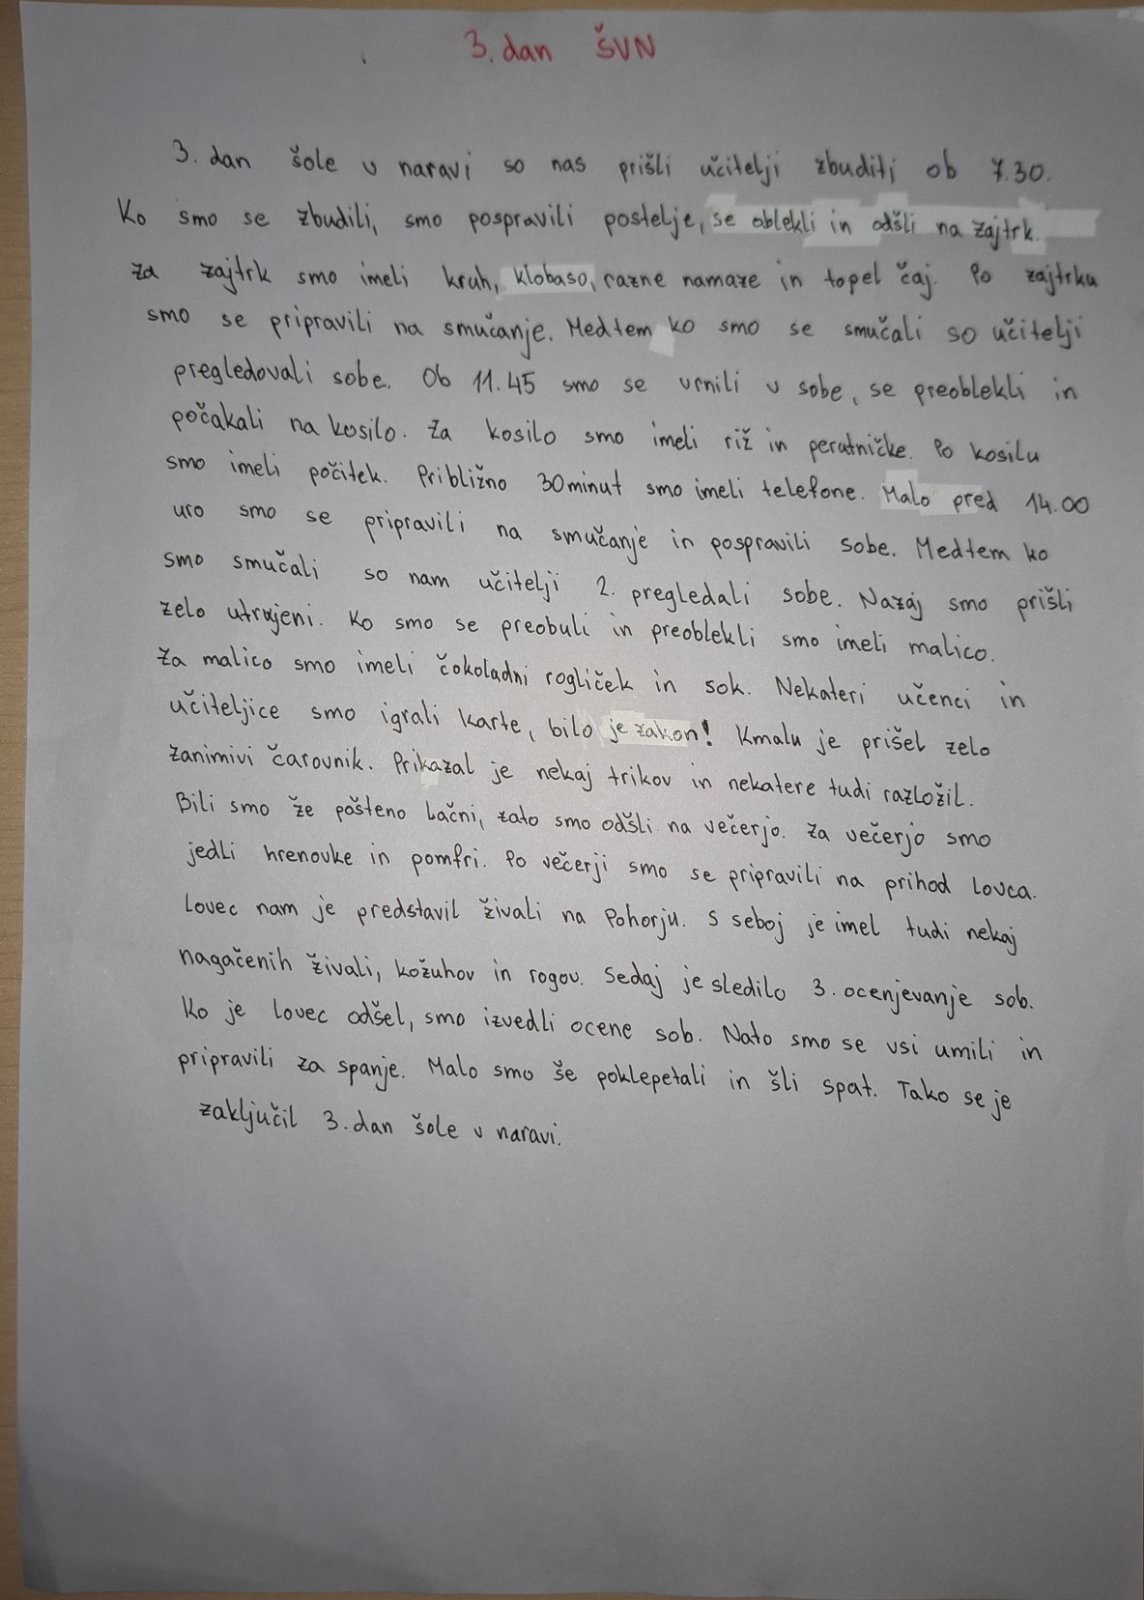 3. dan ŠVN
3. dan šole v naravi so nas prišli učitelji zbuditi ob 7.30.
Ko smo se zbudili, smo pospravili postelje, se oblekli in odšli na zajtrk.
Za zajtrk smo imeli kruh, klobaso, razne namaze in topel čaj. Po zajtrku
smo se pripravili na smučanje. Medtem ko smo se smučali so učitelji
pregledovali sobe. Ob 11.45 smo se vrnili v sobe, se preoblekli in
počakali na kosilo. Za kosilo smo imeli riž in perutničke. Po kosilu
smo imeli počitek. Približno 30minut smo imeli telefone. Malo pred 14.00
uro smo se pripravili na smučanje in pospravili sobe. Medtem ko
smo smučali so nam učitelji 2. pregledali sobe. Nazaj smo prišli
zelo utrujeni. Ko smo se preobuli in preoblekli smo imeli malico.
Za malico smo imeli čokoladni rogliček in sok. Nekateri učenci in
učiteljice smo igrali karte, bilo je zakon! Kmalu je prišel zelo
zanimivi čarovnik. Prikazal je nekaj trikov in nekatere tudi razložil.
Bili smo že pošteno lačni, zato smo odšli na večerjo. Za večerjo smo
jedli hrenovke in pomfri. Po večerji smo se pripravili na prihod lovca.
Lovec nam je predstavil živali na Pohorju. S seboj je imel tudi nekaj
nagačenih živali, kožuhov in rogov. Sedaj je sledilo 3. ocenjevanje sob.
Ko je lovec odšel, smo izvedli ocene sob. Nato smo se vsi umili in
pripravili za spanje. Malo smo še poklepetali in šli spat. Tako se je
zaključil 3. dan šole v naravi.